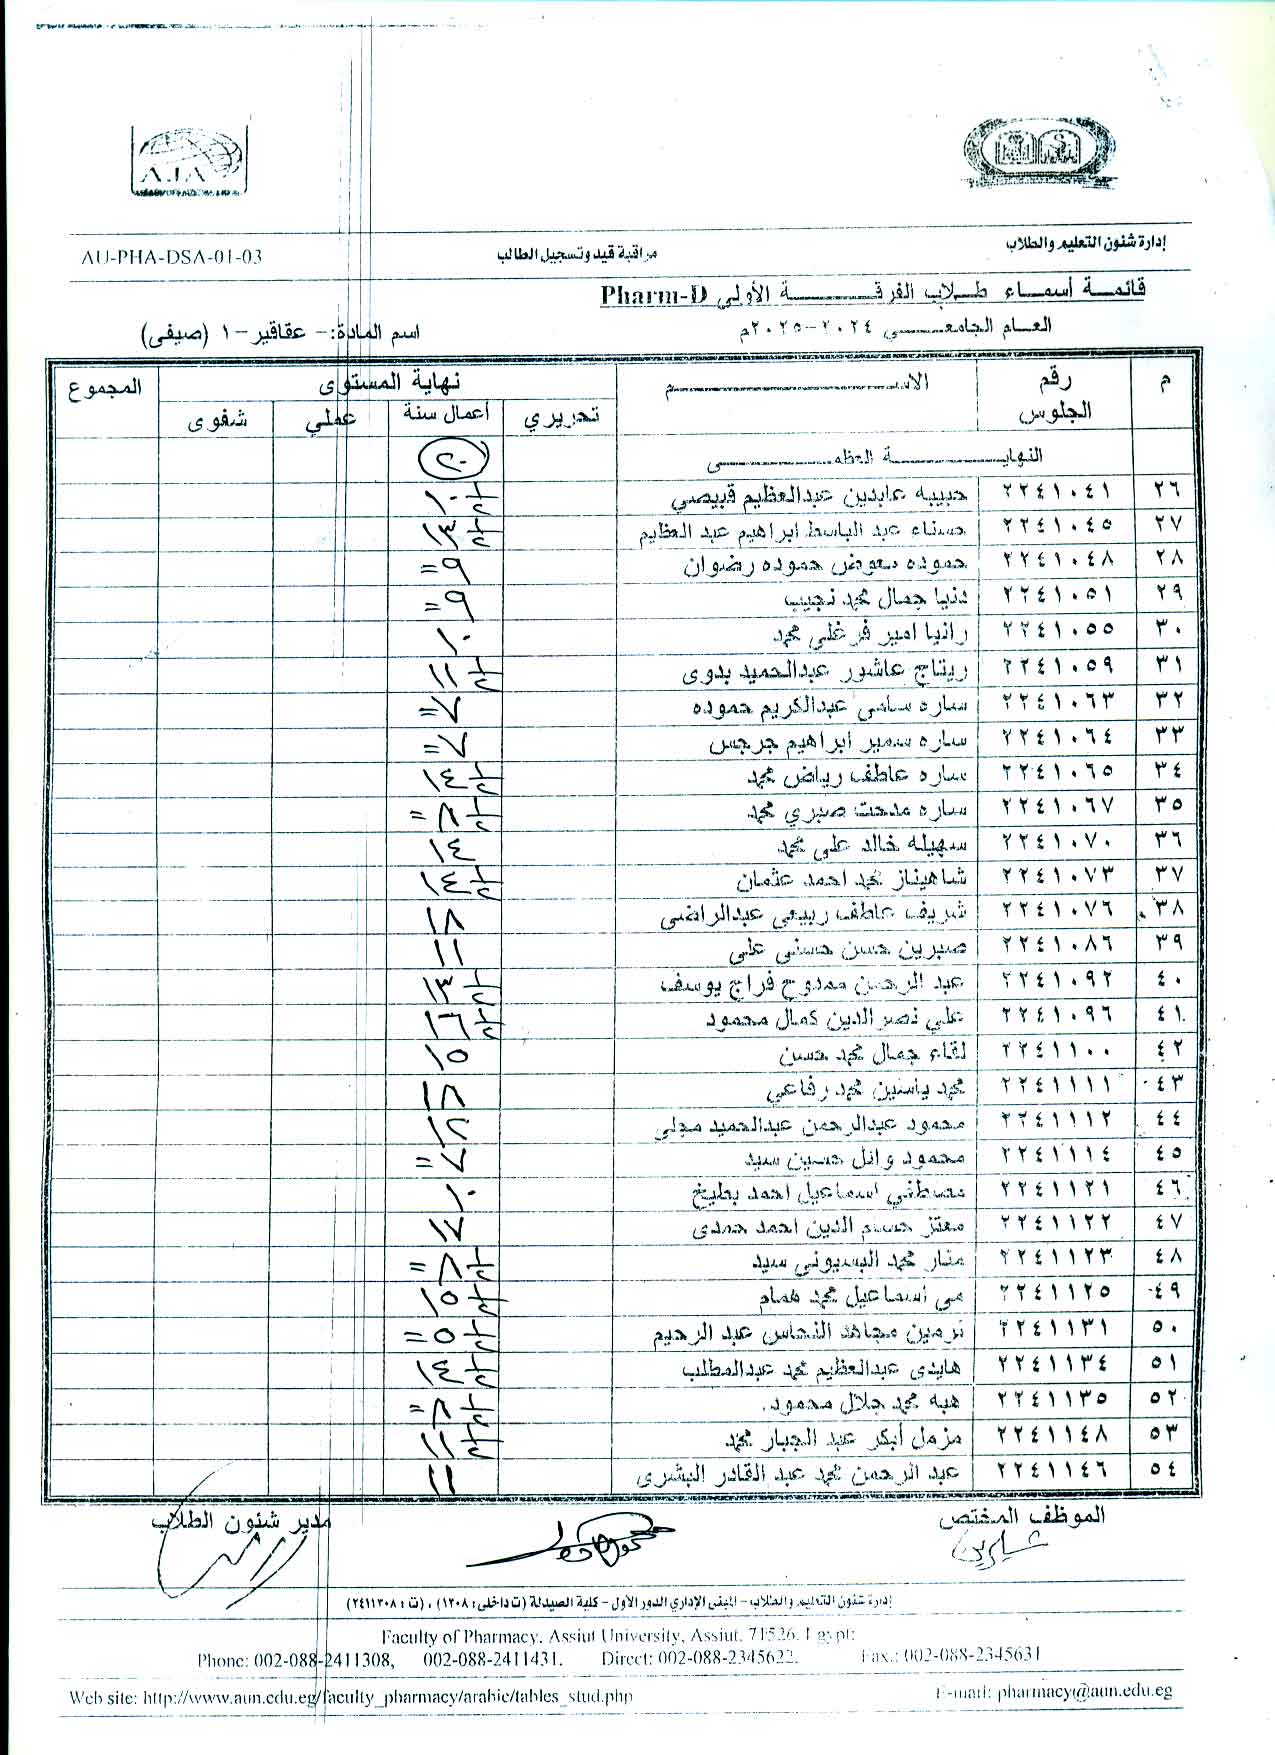 AJA
إدارة شئون التعليم والطلاب
مراقبة قيد وتسجيل الطالب
AU-PHA-DSA-01-03
قائمة أسماء طلاب الفرقة الأولى Pharm-D
العام الجامعي ٢٠٢٤-٢٠٢٥م
اسم المادة:- عقاقير-١ (صيفى)
م رقم الجلوس الاسم نهاية المستوى المجموع
تحريري أعمال سنة عملي شفوى
النهاية العظمى ٢٠
٢٦ ٢٢٤١٠٤١ حبيبه عابدين عبدالعظيم قبيصي ١٠ ١/٢
٢٧ ٢٢٤١٠٤٥ حسناء عبد الباسط ابراهيم عبد العظيم ١٣ ١/٢
٢٨ ٢٢٤١٠٤٨ حموده معوض حموده رضوان ٩ =
٢٩ ٢٢٤١٠٥١ دنيا جمال محمد نجيب ٩ =
٣٠ ٢٢٤١٠٥٥ رانيا امير فرغلي محمد ١٠
٣١ ٢٢٤١٠٥٩ ريتاج عاشور عبدالحميد بدوى ١١ ١/٢
٣٢ ٢٢٤١٠٦٣ ساره سامى عبدالكريم حموده ٧ =
٣٣ ٢٢٤١٠٦٤ ساره سمير ابراهيم جرجس ٧ =
٣٤ ٢٢٤١٠٦٥ ساره عاطف رياض محمد ١٤ ١/٢
٣٥ ٢٢٤١٠٦٧ ساره مدحت صبري محمد ٨ ١/٢ =
٣٦ ٢٢٤١٠٧٠ سهيله خالد على محمد ١٤
٣٧ ٢٢٤١٠٧٣ شاهيناز محمد احمد عثمان ١٤ ١/٢
٣٨ ٢٢٤١٠٧٦ شريف عاطف ربيعي عبدالراضى ١٨
٣٩ ٢٢٤١٠٨٦ صبرين حسن حسنى على ١١
٤٠ ٢٢٤١٠٩٢ عبد الرحمن ممدوح فراج يوسف ١٣ ١/٢
٤١ ٢٢٤١٠٩٦ علي نصر الدين كمال محمود ١٦ ١/٢
٤٢ ٢٢٤١١٠٠ لقاء جمال محمد حسن ١٥
٤٣ ٢٢٤١١١١ محمد ياسين محمد رفاعي ١٨
٤٤ ٢٢٤١١١٢ محمود عبدالرحمن عبدالحميد مجلي ١٢
٤٥ ٢٢٤١١١٤ محمود وائل حسين سيد ٧ =
٤٦ ٢٢٤١١٢١ مصطفي اسماعيل احمد بطيخ ١٠
٤٧ ٢٢٤١١٢٢ معتز حسام الدين احمد حمدى ١٧
٤٨ ٢٢٤١١٢٣ منار محمد البسيوني سيد ٨ ١/٢ =
٤٩ ٢٢٤١١٢٥ مي اسماعيل محمد همام ١٥ ١/٢
٥٠ ٢٢٤١١٣١ نرمين مجاهد النحاس عبد الرحيم ٥ ١/٢ =
٥١ ٢٢٤١١٣٤ هايدى عبدالعظيم محمد عبدالمطلب ١٤ ١/٢
٥٢ ٢٢٤١١٣٥ هبه محمد جلال محمود ٨ ١/٢ =
٥٣ ٢٢٤١١٤٨ مزمل أبكر عبد الجبار محمد ١١ ١/٢
٥٤ ٢٢٤١١٤٦ عبد الرحمن محمد عبد القادر البشرى ١١
الموظف المختص
مدير شئون الطلاب
شيرين
إدارة شئون التعليم والطلاب - المبنى الإداري الدور الأول - كلية الصيدلة (ت داخلى: ١٣٠٨) ، (ت: ٢٤١١٣٠٨)
Faculty of Pharmacy, Assiut University, Assiut, 71526, Egypt:
Phone: 002-088-2411308, 002-088-2411431. Direct: 002-088-2345622. Fax.: 002-088-2345631
Web site: http://www.aun.edu.eg/faculty_pharmacy/arabic/tables_stud.php
E-mail: pharmacy@aun.edu.eg